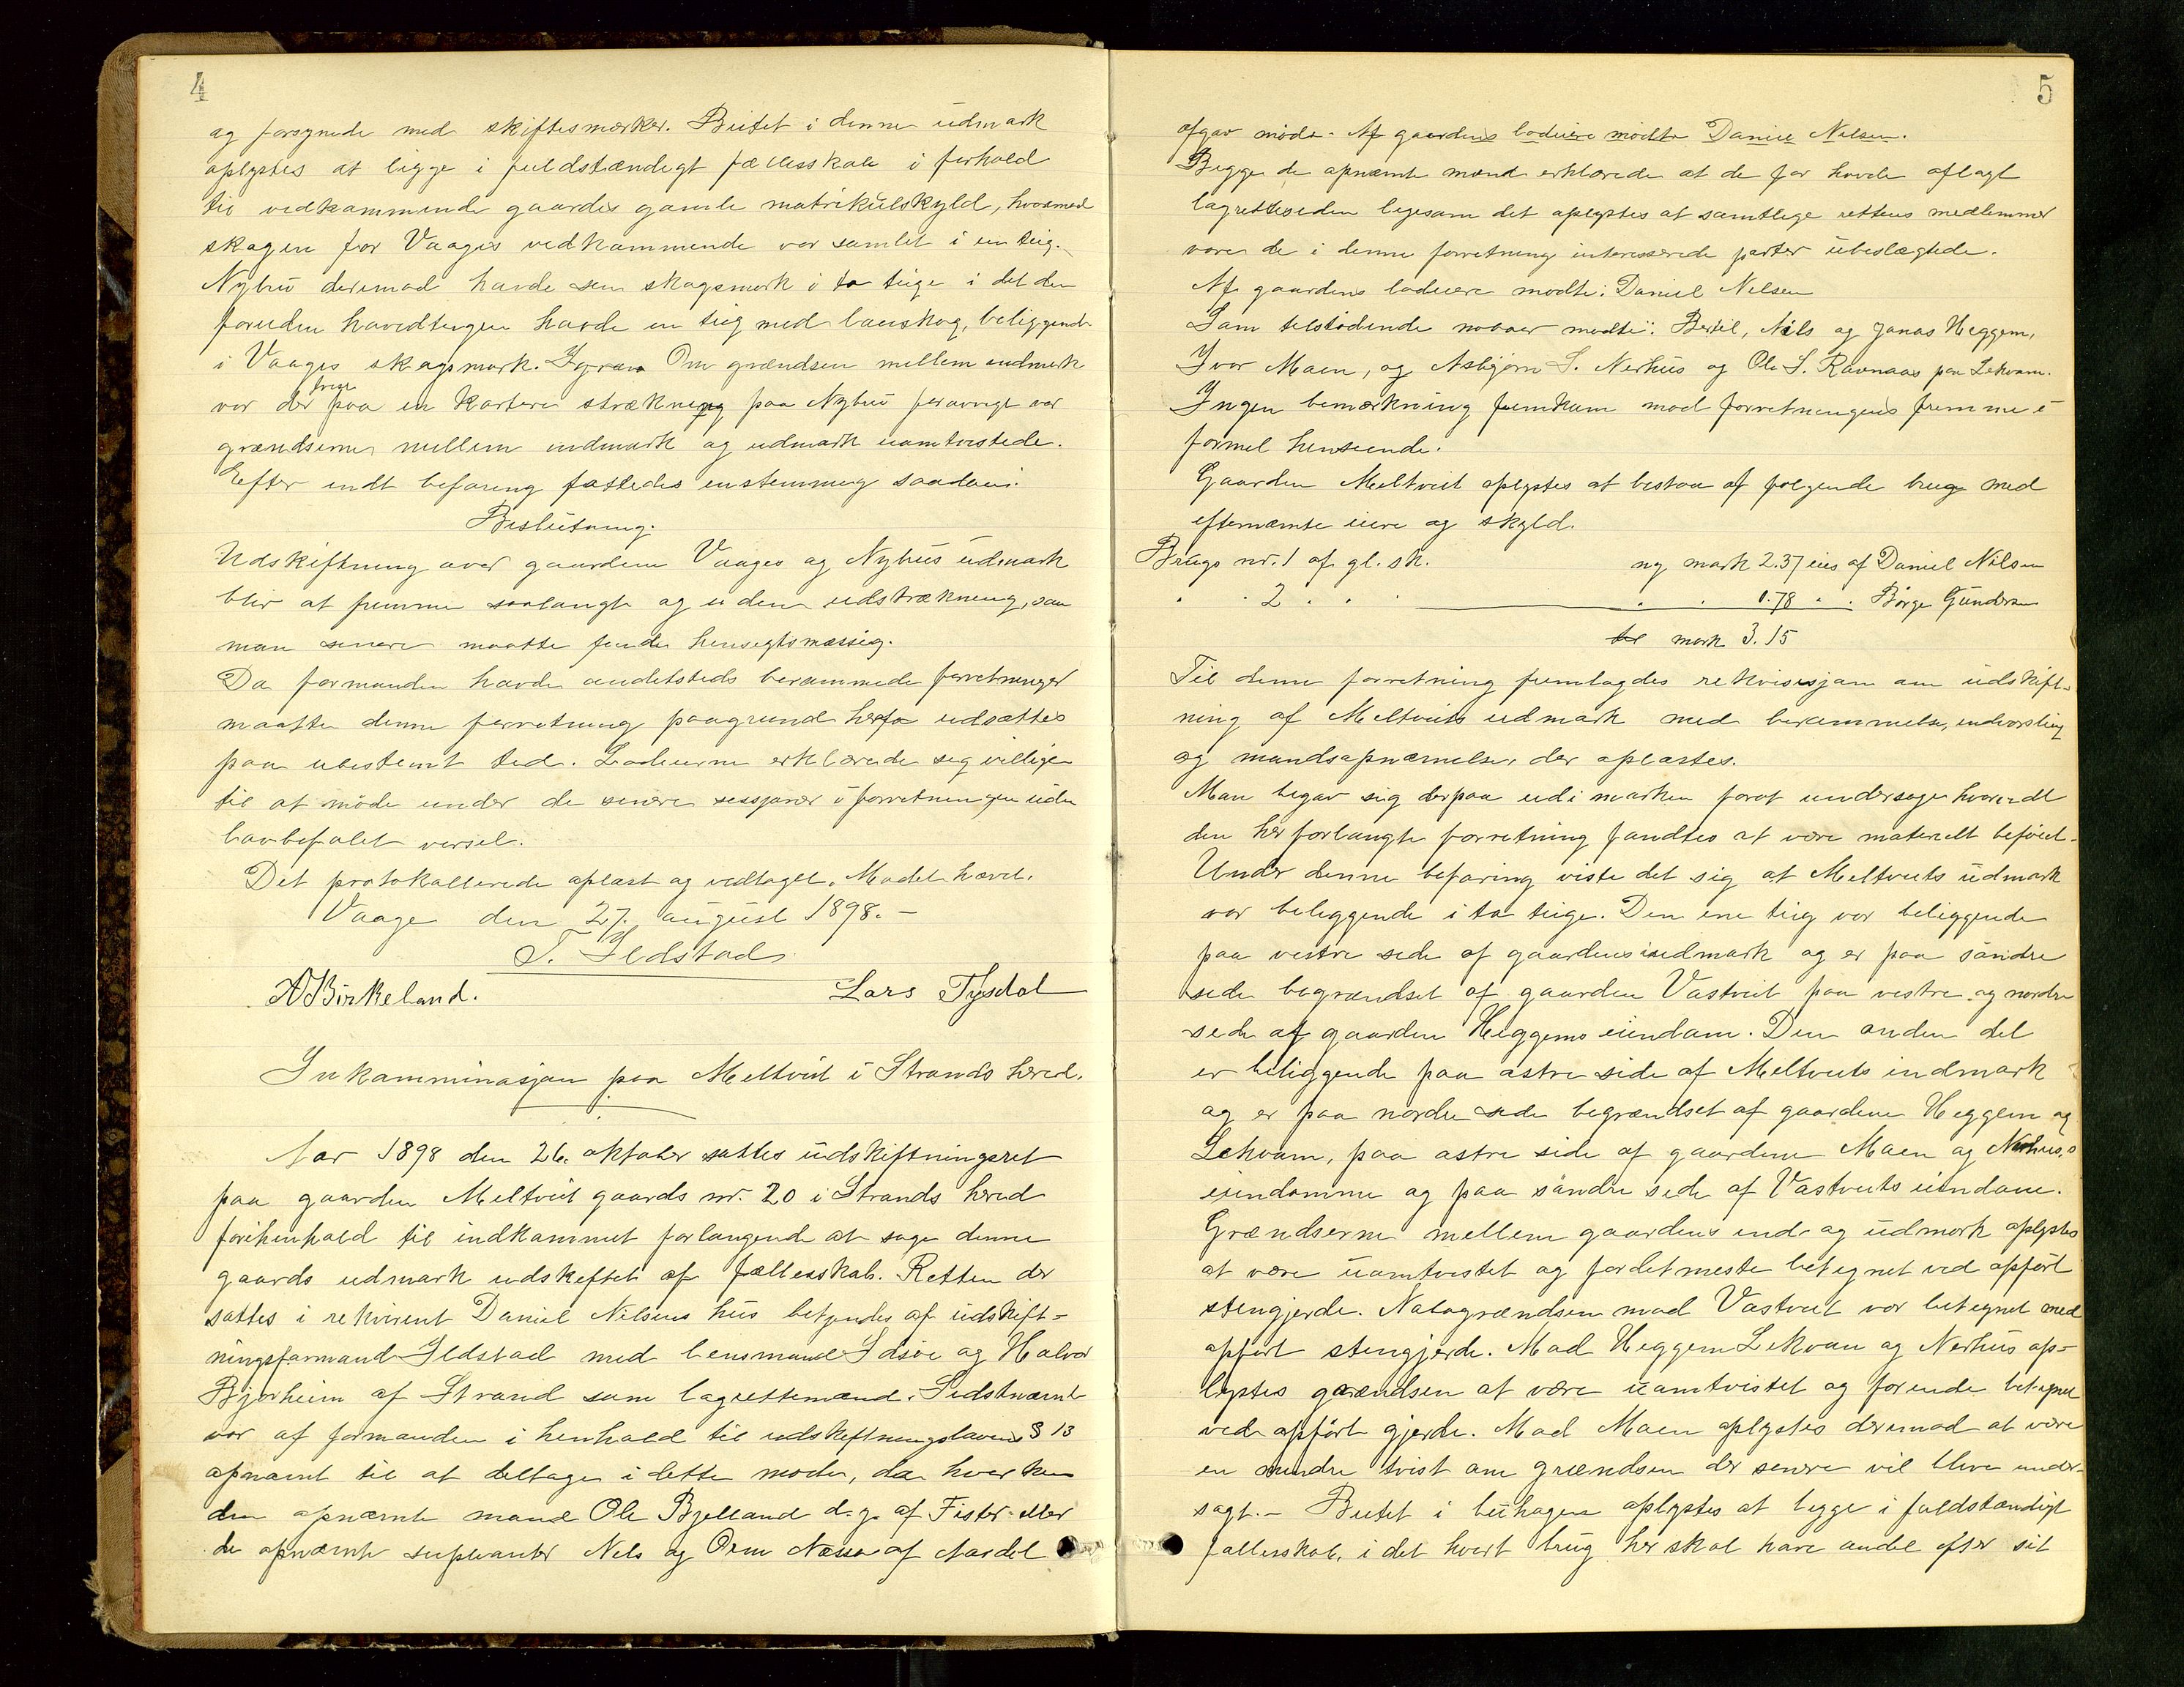 4
og forsynede med skiftesmærker. Beitet i denne udmark
oplystes at ligge i fuldstændigt fællesskab i forhold
til vedkommende gaardes gamle matrikulskyld, hvormed
skogen for Vaages vedkommende var samlet i en teig.
Nyhus derimod havde sin skogsmark i to teige i det den
foruden hovedteigen havde en teig med lauvskog, beliggende
i Vaages skogsmark. Om grændsen mellem indmark
var der paa en kortere strækning paa Nyhus forøvrigt var
grændserne mellem indmark og udmark uomtvistede.
Efter endt befaring fattedes enstemmig saadan
Beslutning.
Udskiftning over gaardene Vaages og Nyhus udmark
blir at fremme saalangt og i den udstrækning, som
man senere maatte finde hensigtsmæssig.
Da formanden havde andetsteds berammede forretninger
maatte denne forretning paagrund herfa udsættes
paa ubestemt tid. Lodeierne erklærede sig villige
til at møde under de senere sessjoner i forretningen uden
lovbefalet varsel.
Det protokollerede oplæst og vedtaget. Mødet hævet.
Vaage den 27. august 1898. –
T. Ildstad
A Birkeland.
Lars Tysdal
Inkamminasjon paa Meltveit i Strands hered.
Aar 1898 den 26. oktober sattes udskiftningsret
paa gaarden Meltveit gaards nr. 20 i Strands hered
forihenhold til indkommet forlangende at søge denne
gaards udmark udskiftet af fællesskab. Retten der
sattes i rekvirent Daniel Nilsens hus betjendes af udskift-
ningsformand Ildstad med lensmand Idsøe og Halvor
Bjørheim af Strand som lagrettemænd. Sidstnævnte
var af formanden i henhold til udskiftningslovens § 13
opnævnt til at deltage i dette møde, da hverken
den opnævnte mand Ole Bjelland d.y. af Fister eller
de opnævnte supleanter Nils og Orm Nessa af Aardal
5
afgav møde. Af gaardens lodeiere mødte Daniel Nilsen.
Begge de opnævnte mænd erklærede at de før havde aflagt
lagretteseden ligesom det oplystes at samtlige rettens medlemmer
vare de i denne forretning interesserede parter ubeslægtede.
Af gaardens lodeiere mødte: Daniel Nilsen
Som tilstødende naboer mødte: Bertil, Nils og Jonas Heggem,
Ivar Maen, og Asbjørn S. Nerhus og Ole S. Ravnaas paa Lekvam.
Ingen bemærkning fremkom mod forretningens fremme i
formel henseende.
Gaarden Meltveit oplystes at bestaa af følgende brug med
efternævnte eiere og skyld.
Brugs nr. 1 af gl. sk. ny mark 2.37 eies af Daniel Nilsen
" " 2 " " " " " 0.78 " " Børge Gundersen
til mark 3.15
Til denne forretning fremlagdes rekvisisjon om udskift-
ning af Meltveits udmark med berammelse, indvarsling
og mandsopnævnelse der oplæstes.
Man begav sig derpaa ud i marken forat undersøge hvorvidt
den her forlangte forretning fandtes at være materielt beføiet.
Under denne befaring viste det sig at Meltveits udmark
var beliggende i to teige. Den ene teig var beliggende
paa vestre side af gaardens indmark og er paa søndre
side begrændset af gaarden Vastveit paa vestre og nordre
side af gaarden Heggems eiendom. Den anden del
er beliggende paa østre side af Meltveits indmark
og er paa nordre side begrændset af gaardene Heggem og
Lekvam, paa østre side af gaardene Maen og Nerhus,s
eiendomme og paa søndre side af Vastveits eiendom.
Grændserne mellem gaardens ind- og udmark oplystes
at være uomtvistet og fordetmeste betegnet ved opført
stengjerde. Nabogrændsen mod Vastveit var betegnet med
opført stengjerde. Mod Heggem Lekvam og Nerhus op-
lystes grændsen at være uomtvistet og forende betegnet
ved opført gjerde. Mod Maen oplystes derimod at være
en mindre tvist om grændsen der senere vil blive under-
søgt. – Beitet i buhagen oplystes at ligge i fuldstændigt
fællesskab, i det hvert brug her skal have andel efter sit